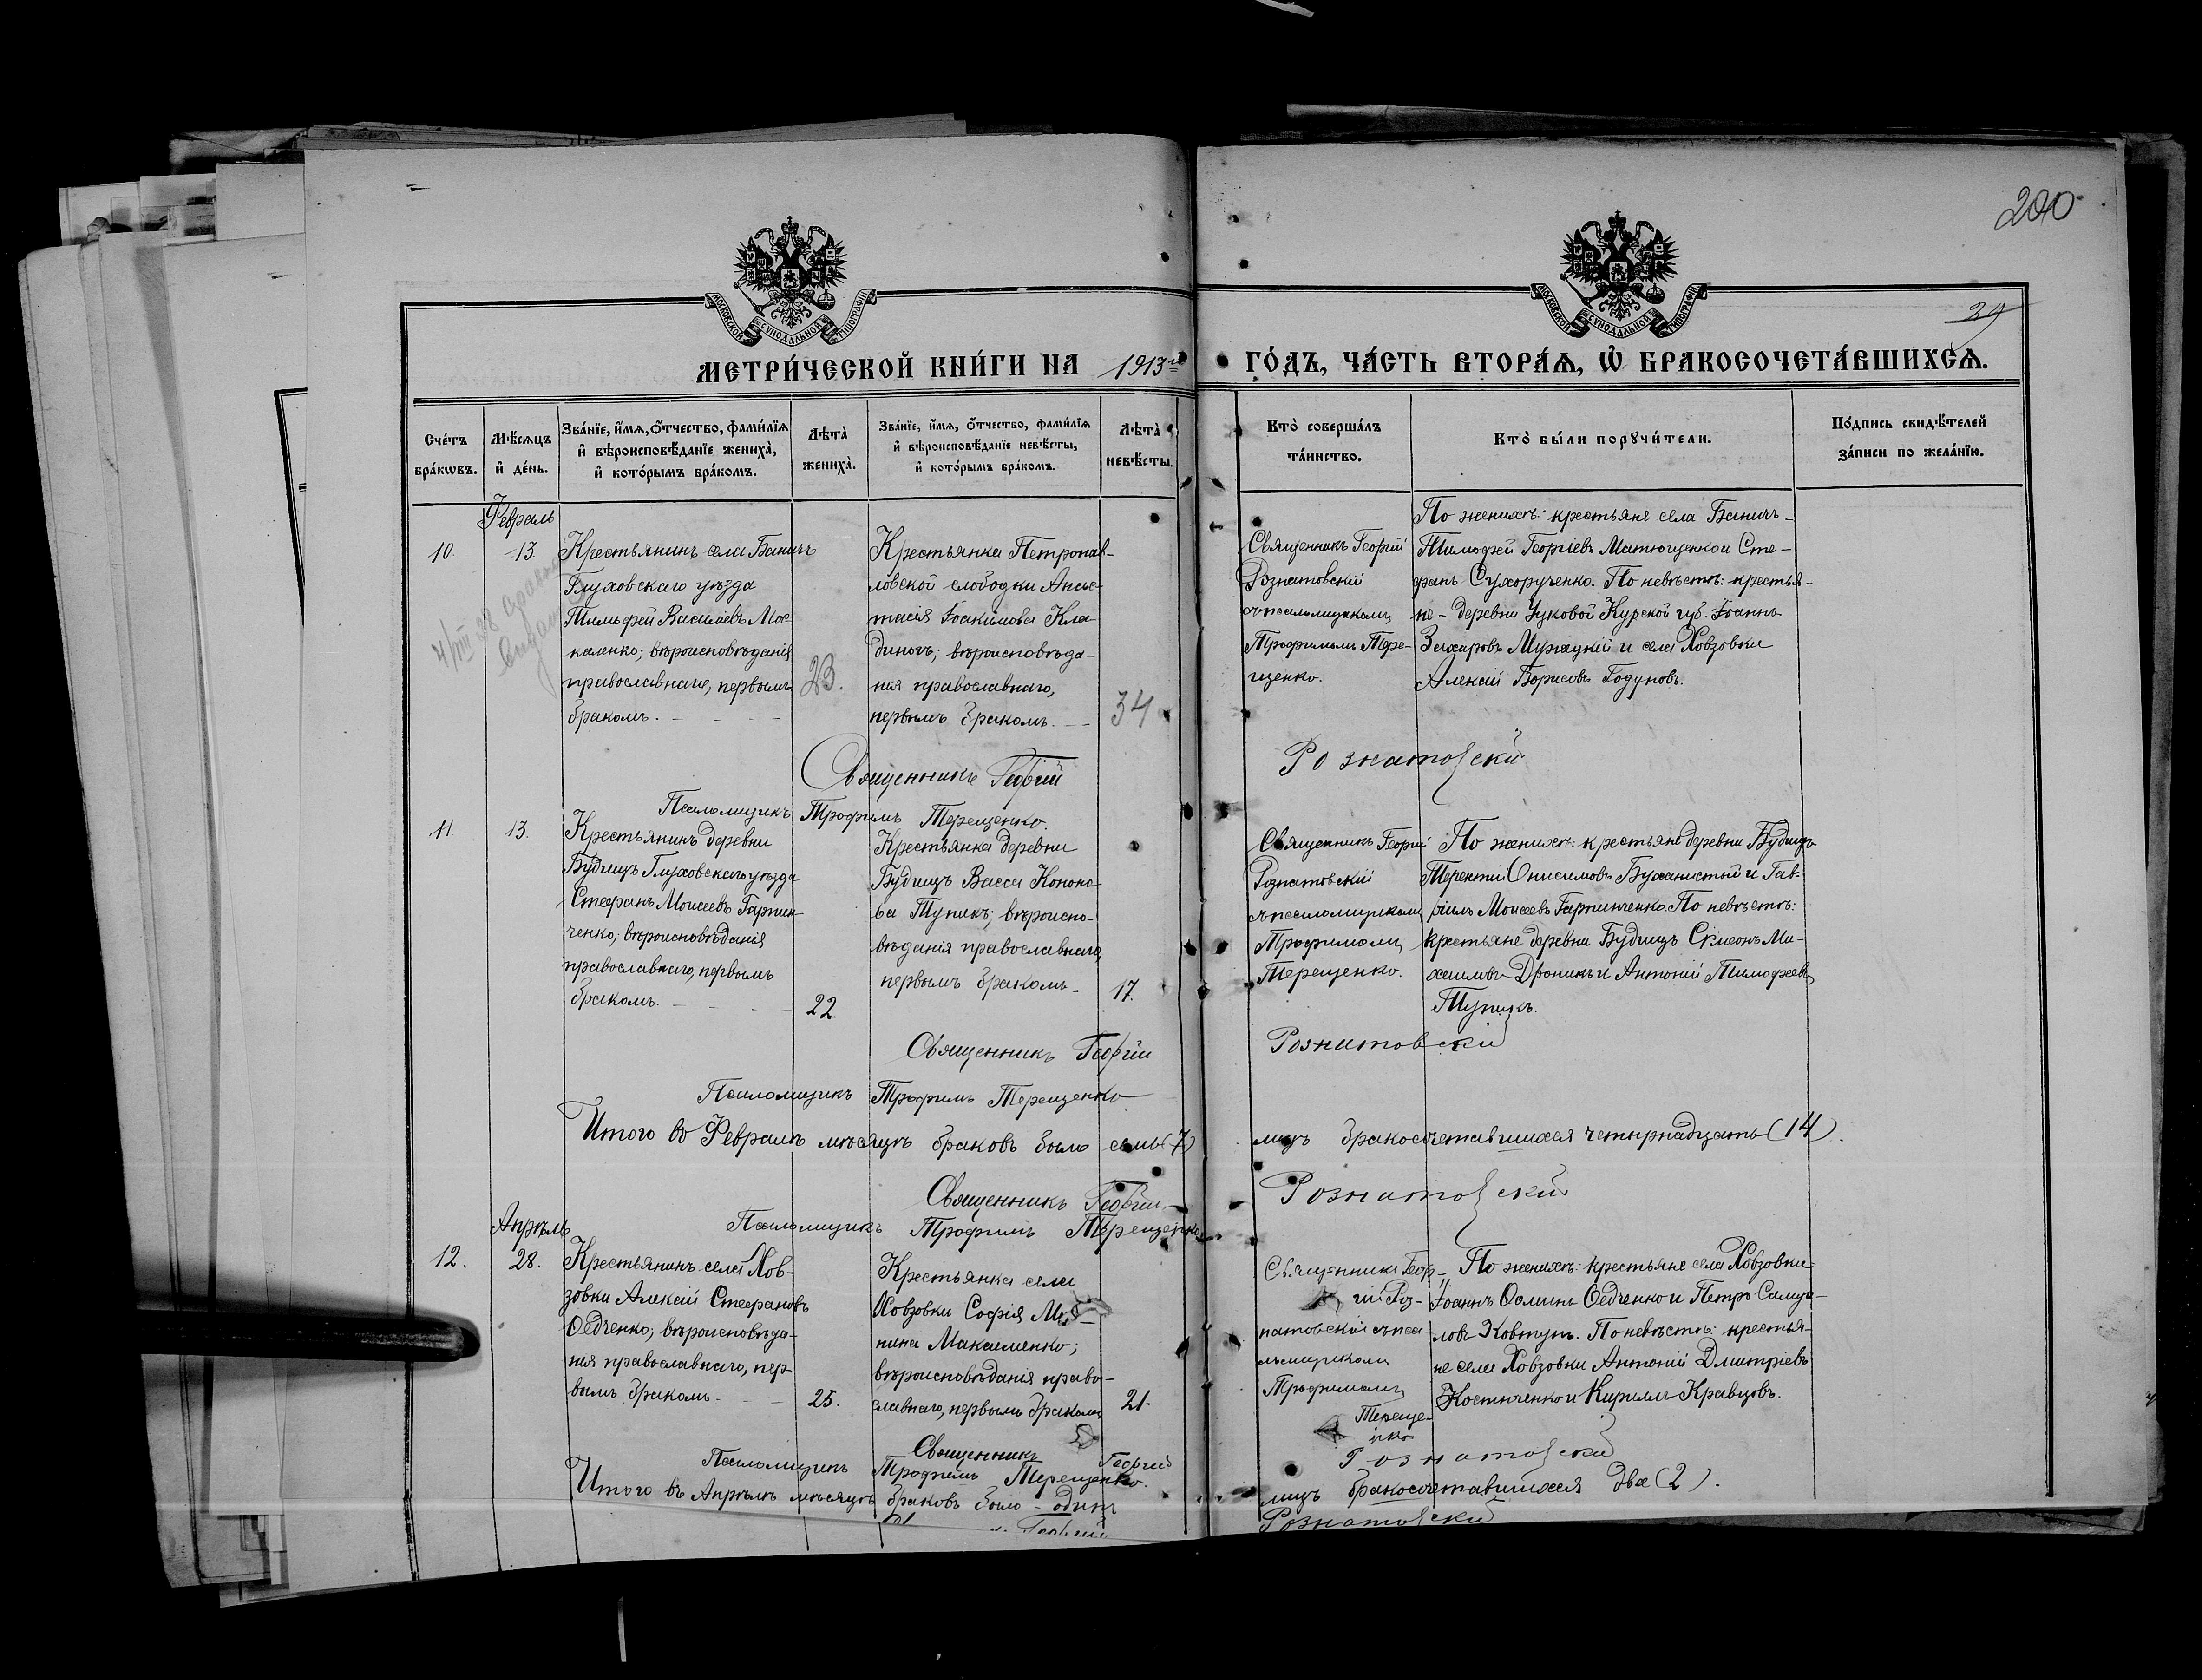 200
29
МОСКОВСКОЙ СУНОДАЛЬНОЙ ТИПОГРАФІИ
МОСКОВСКОЙ СУНОДАЛЬНОЙ ТИПОГРАФІИ
МЕТРИ́ЧЕСКОЙ КНИ́ГИ НА 1913 ГО́ДЪ, ЧА́СТЬ ВТОРА́Я, Ѿ БРАКОСОЧЕТА́ВШИХСЯ.
Сче́тъ бра́кѡвъ.
Мѣ́сяцъ и҆ де́нь.
Зва́нїе, и҆́мя, ѻ҆́тчество, фами́лїя и҆ вѣроисповѣ́данїе жениха̀, и҆ кото́рымъ бра́комъ.
Лѣта̀ жениха̀.
Зва́нїе, и҆́мя, ѻ҆́тчество, фами́лїя и҆ вѣроисповѣ́данїе невѣ́сты, и҆ кото́рымъ бра́комъ.
Лѣта̀ невѣ́сты.
Кто̀ соверша́лъ та́инство.
Кто̀ бы́ли порꙋчи́тели.
По́дпись свидѣ́телей за́писи по жела́нїю.
Февраль
10.
13.
Крестьянинъ села Баничъ
Глуховскаго уѣзда
Тимофей Василіевъ Мос-
каленко; вѣроисповѣданія
православнаго, первымъ
бракомъ.
23.
Крестьянка Петропав-
ловской слободки Анас-
тасія Іоакимова Кла-
диногъ; вѣроисповѣда-
нія православнаго,
первымъ бракомъ.
34
Священникъ Георгій
Рознатовскій
съ псаломщикомъ
Трофимомъ Тере-
щенко.
По женихѣ: крестьяне села Баничъ
Тимофей Георгіевъ Матющенко и Сте-
фанъ Сухорученко. По невѣстѣ: крестья-
не - деревни Чуковой Курской губ. Іоаннъ
Захаровъ Мужецкій и села Ховзовки
Алексій Борисовъ Годуновъ.
Священникъ Георгій Рознатовскій
Псаломщикъ Трофимъ Терещенко.
11.
13.
Крестьянинъ деревни
Будищъ Глуховскаго уѣзда
Стефанъ Моисеевъ Гарпин-
ченко; вѣроисповѣданія
православнаго, первымъ
бракомъ.
22.
Крестьянка деревни
Будищъ Васса Конono-
ва Тупикъ; вѣроиспо-
вѣданія православнаго,
первымъ бракомъ
17.
Священникъ Георгій
Рознатовскій
съ псаломщикомъ
Трофимомъ
Терещенко.
По женихѣ: крестьяне деревни Будищъ
Терентій Онисимовъ Буханистый и Гав-
ріилъ Моисеевъ Гарпинченко. По невѣстѣ:
крестьяне деревни Будищъ Симеонъ Ми-
хаиловъ Дроникъ и Антоній Тимофеевъ
Тупикъ.
Священникъ Георгій Рознатовскій
Псаломщикъ Трофимъ Терещенко
Итого въ Февралѣ мѣсяцѣ браковъ было семь (7) лицъ бракосочетавшихся четырнадцать (14).
Священникъ Георгій Рознатовскій
Псаломщикъ Трофимъ Терещенко
Апрѣль
12.
28.
Крестьянинъ села Хов-
зовки Алексій Стефановъ
Ѳедченко; вѣроисповѣда-
нія православнаго, пер-
вымъ бракомъ
25.
Крестьянка села
Ховзовки Софія
нина Макаименко;
вѣроисповѣданія право-
славнаго, первымъ бракомъ
21.
Священникъ Геор-
гій Роз-
натовскій съ пса-
ломщикомъ
Трофимомъ
Тереще-
нко
По женихѣ: крестьяне села Ховзовки
Іоаннъ Ѳоминъ Ѳедченко и Петръ Самуи-
ловъ Ковтунъ. По невѣстѣ: крестья-
не села Ховзовки Антоній Димитріевъ
Костюченко и Кириллъ Кравцовъ.
Священникъ Георгій Рознатовскій
Псаломщикъ Трофимъ Терещенко.
Итого въ Апрѣлѣ мѣсяцѣ браковъ было - одинъ лицъ бракосочетавшихся два (2).
Георгій Рознатовскій